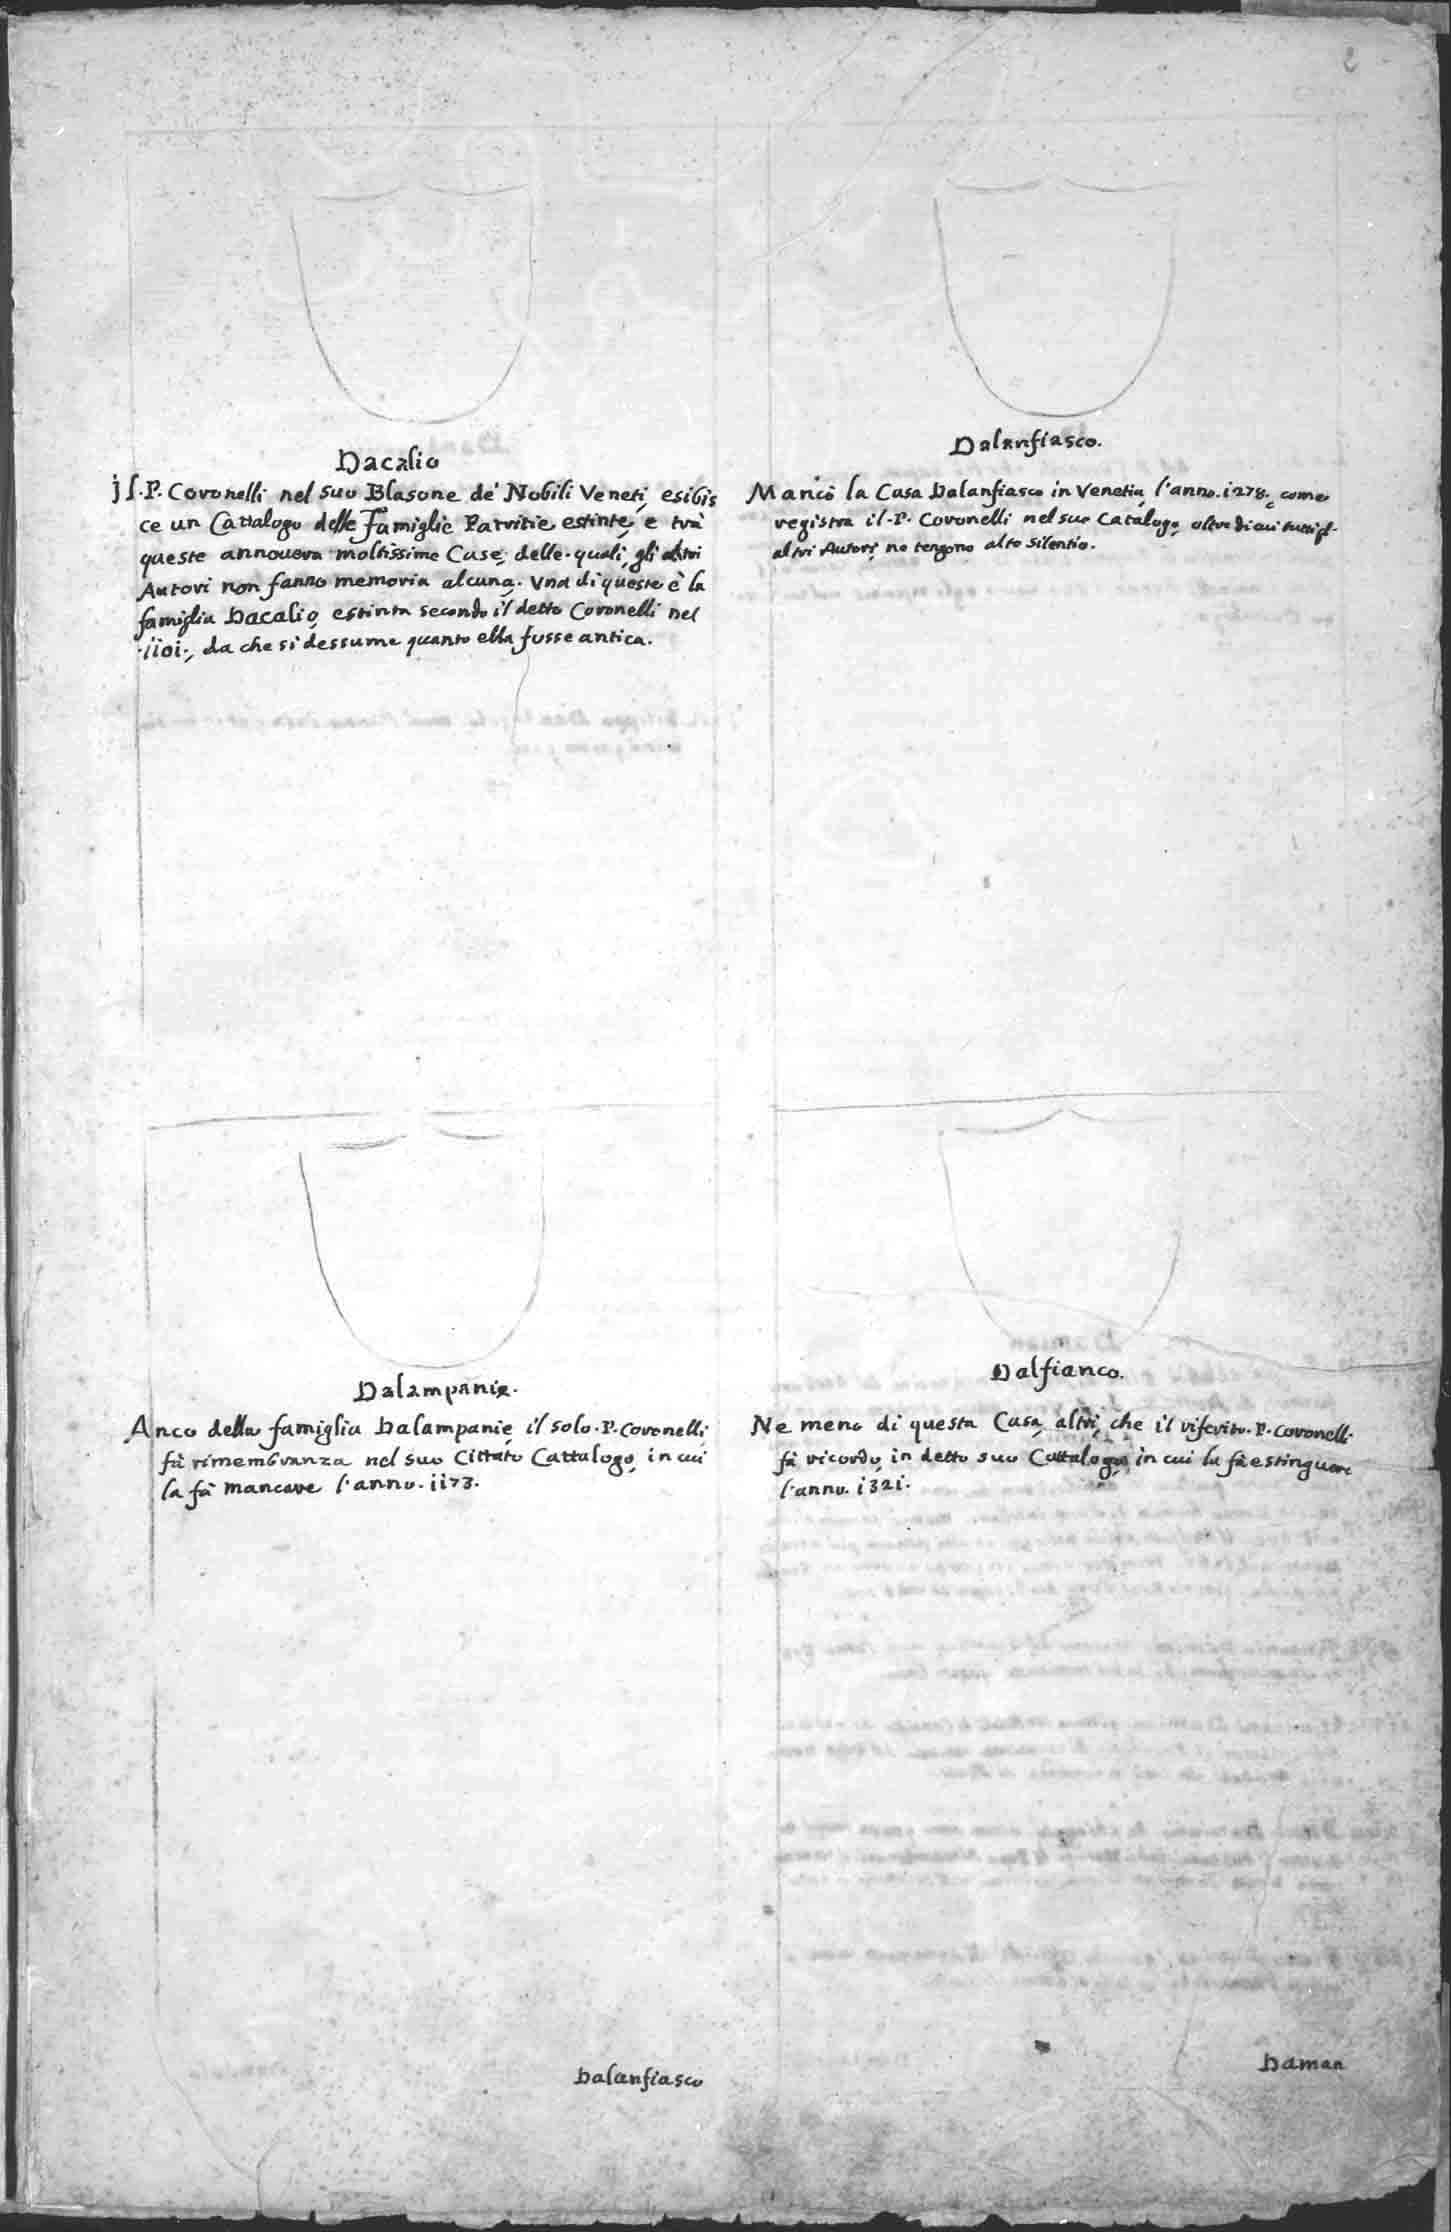 Dacalio
jl. P. Coronelli nel suo Blasone de' Nobili Veneti, esibis
ce un Cattalogo delle Famiglie Patritie estinte, e trà
queste annovera moltissime Case, delle quali, gli altri
Autori non fanno memoria alcuna. Una di queste è la
famiglia Dacalio, estinta secondo il detto Coronelli nel
.1101., da che si dessume quanto ella fusse antica.
Dalampanie.
Anco della famiglia Dalampanie, il solo. P. Coronelli,
fà rimembranza nel suo Cittato Cattalogo, in cui
la fà mancare l'anno. 1173.
Dalanfiasco
Dalanfiasco.
Mancò la Casa Dalanfiasco in Venetia, l'anno. 1278., come
registra il. P. Coronelli nel suo Catalogo, oltre di cui tutti gl'
altri Autori, ne tengono alto silentio.
Dalfianco.
Ne meno di questa Casa, altri, che il riferito. P. Coronelli.
fà ricordo, in detto suo Cattalogo, in cui la fà estinguere
l'anno. 1321.
Daman